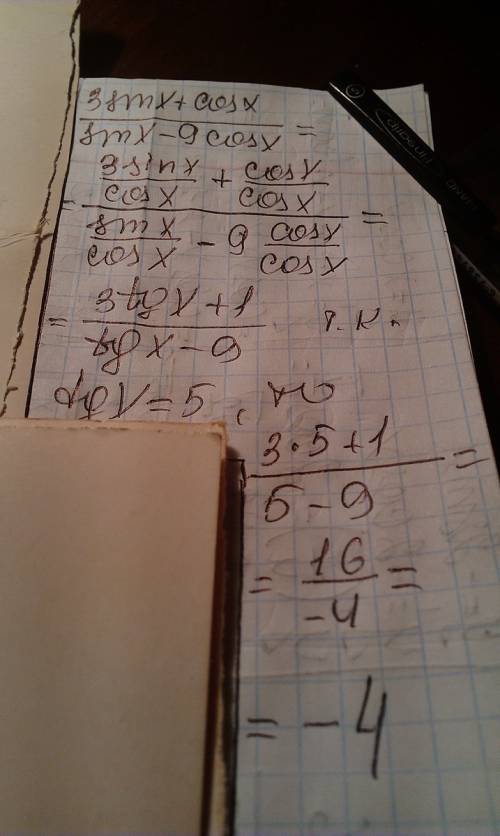 3sinx + cosx / sinx - 9cosx =
= (3sinx/cosx + cosx/cosx) / (sinx/cosx - 9 cosx/cosx) =
= 3tgx + 1 / tgx - 9 т.к.
tgx = 5, то
3·5+1 / 5-9 =
= 16 / -4 =
= -4